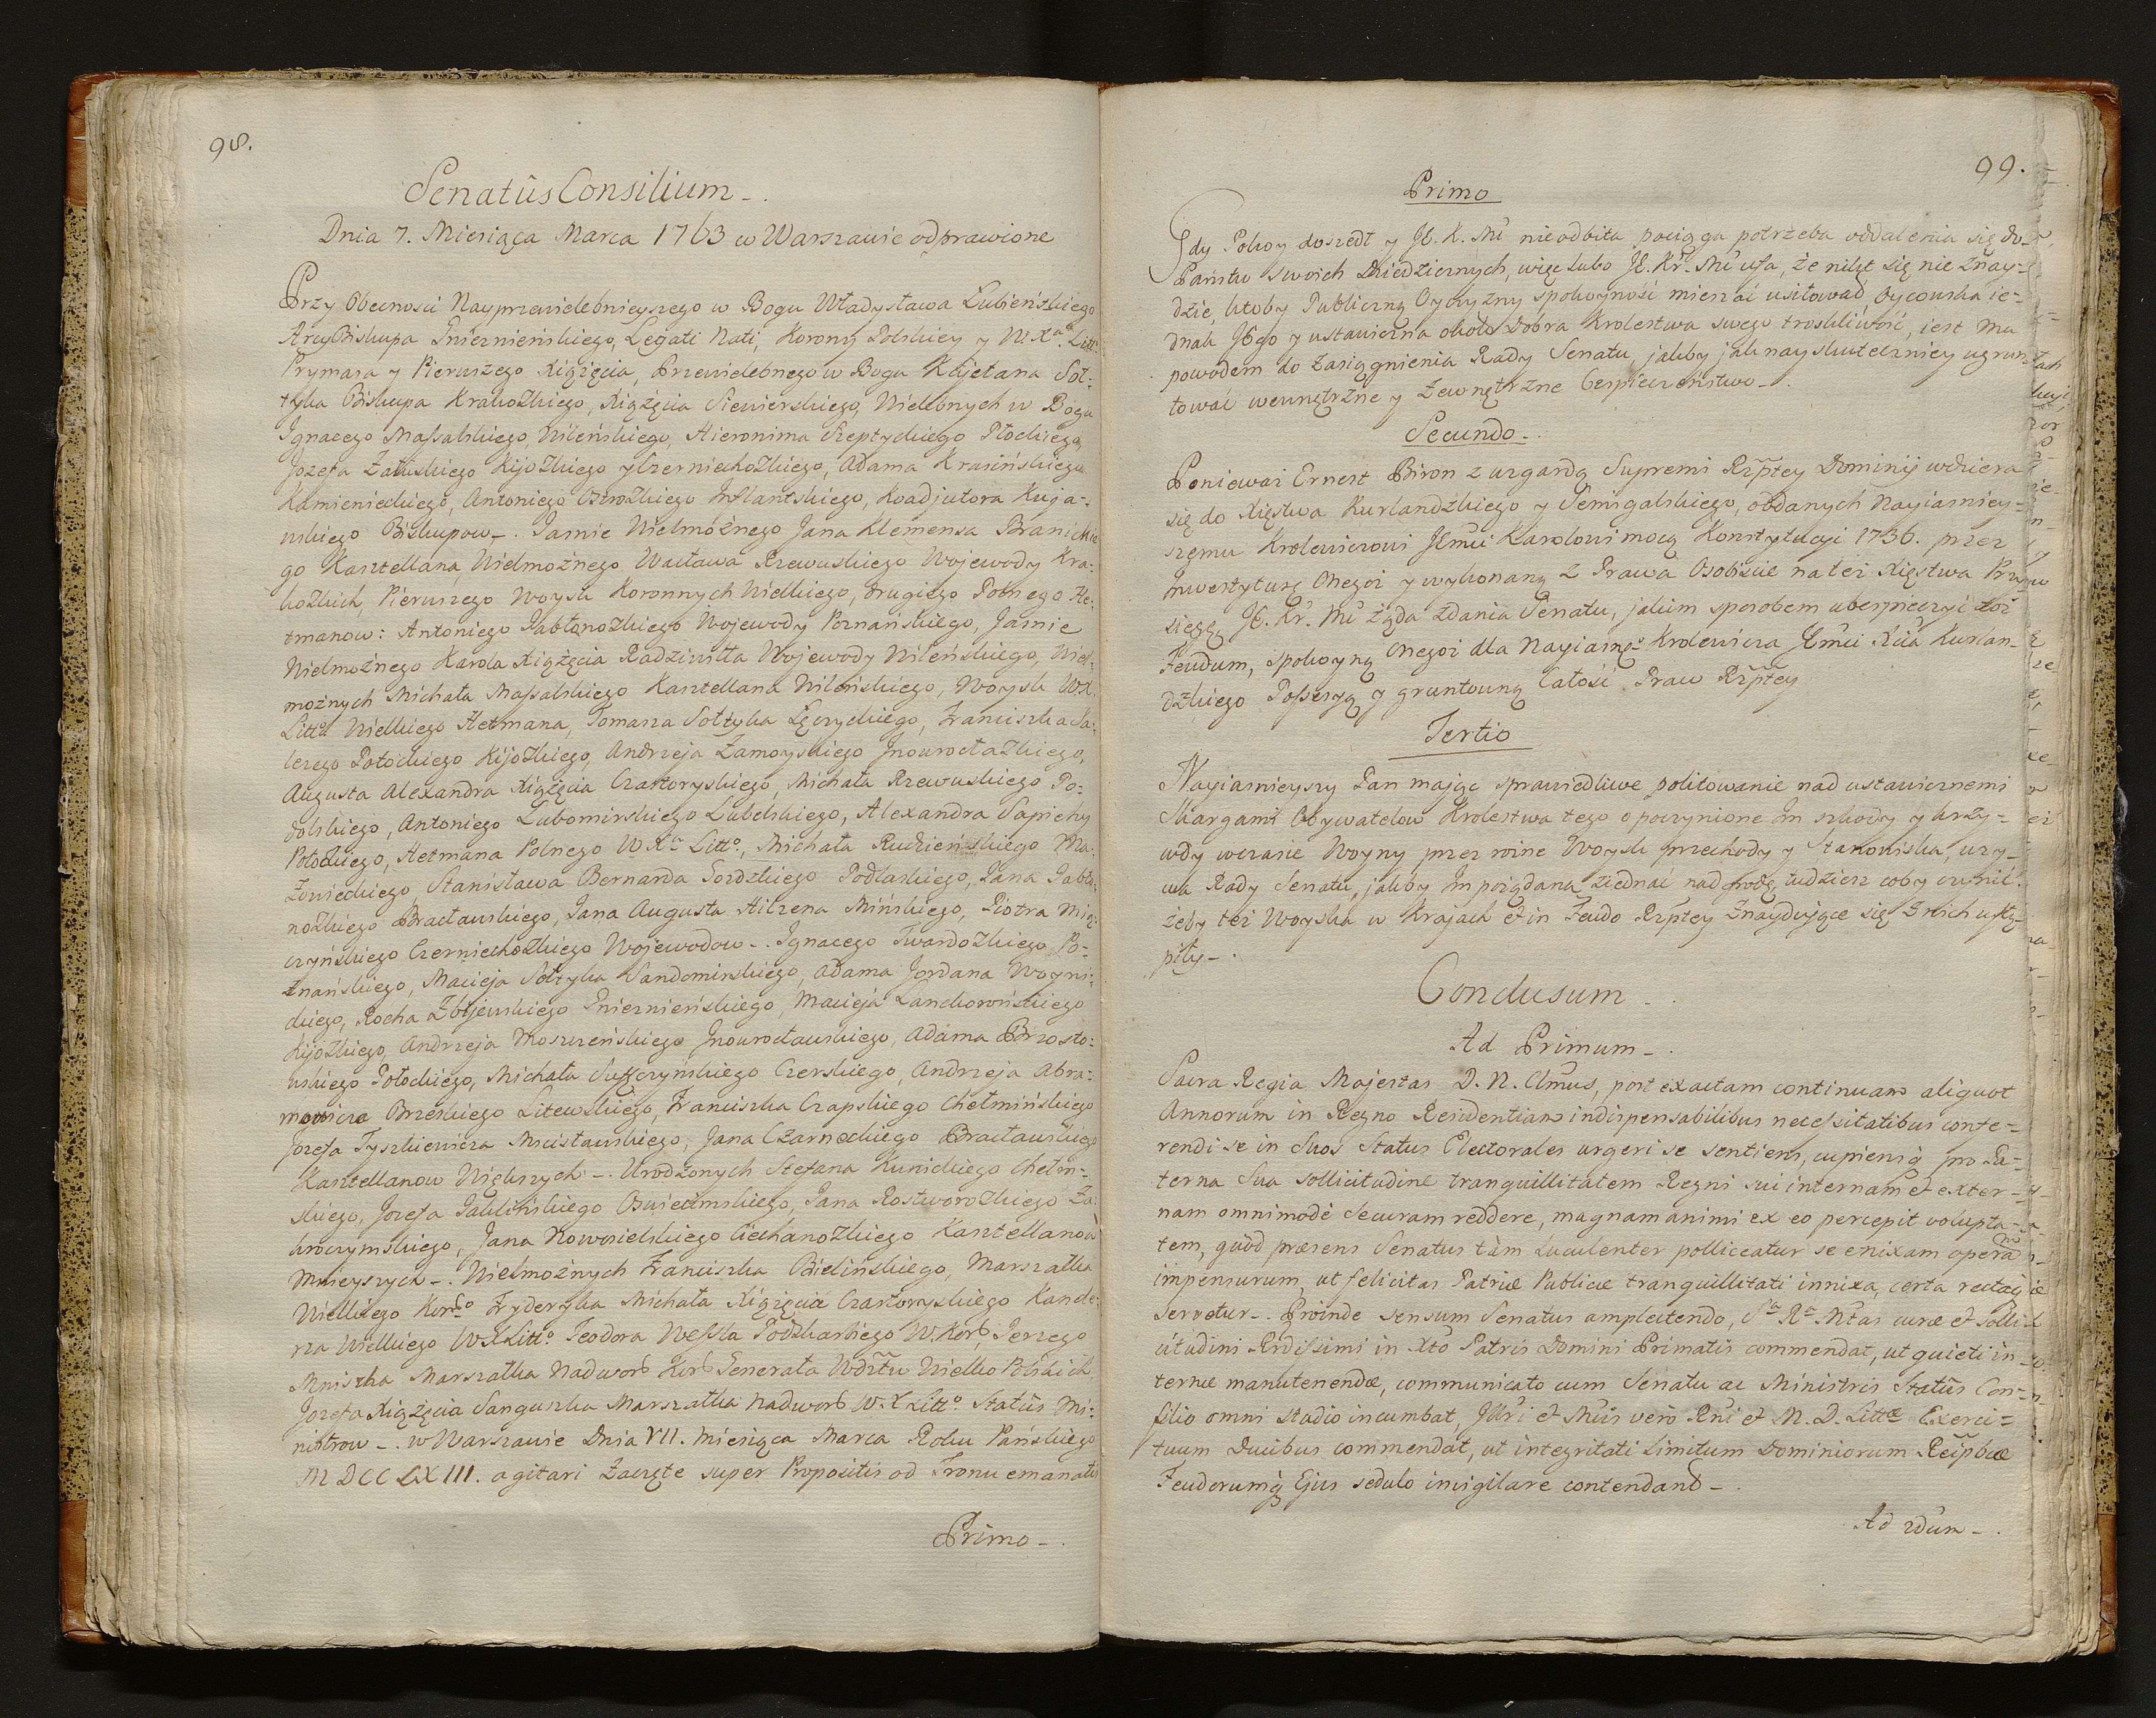 98.
Senatûs Consilium -.
Dnia 7. Miesiąca Marca 1763 w Warszawie odprawione
Przy Obecnosci Nayprzewielebnieyszego w Bogu Władysława Łubieńskiego
ArcyBiskupa Gnieznieńskiego, Legati Nati, Korony Polskiey y W.Xa. Litto
Prymasa y Pierwszego Xiążęcia, Przewielebnego w Bogu Kajetana Soł-
tyka Biskupa Krakozkiego, Xiążęcia Siewierskiego, Wielebnych w Bogu
Ignacego Massalskiego, Wileńskiego, Hieronima Szeptyckiego Płockiego,
Jozefa Załuskiego Kijozkiego y Czerniechozkiego, Adama Krasińskiego
Kamienieckiego, Antoniego Ostrozkiego Inflantskiego, Koadjutora Kuja-
wskiego Biskupow -. Jasnie Wielmożnego Jana Klemensa Branickie
go Kasztellana, Wielmożnego Wacława Rzewuskiego Wojewody Kra-
kozkich, Pierwszego Woysk Koronnych Wielkiego, drugiego Polnego He-
tmanow: Antoniego Jabłonozkiego Wojewody Poznańskiego, Jasnie
Wielmożnego Karola Xiążęcia Radziwiłła Wojewody Wileńskiego, Wiel-
możnych Michała Massalskiego Kasztellana Wileńskiego, Woysk W.X.
Litto Wielkiego Hetmana, Tomasza Sołtyka Łęczyckiego, Franciszka Sa-
lezego Potockiego Kijozkiego, Andrzeja Zamoyskiego Jnowrocłazkiego,
Augusta Alexandra Xiążęcia Czartoryskiego, Michała Rzewuskiego Po-
dolskiego, Antoniego Lubomirskiego Lubelskiego, Alexandra Sapiehy
Połockiego, Hetmana Polnego W Xa Litto., Michała Rudzieńskiego Ma-
zowieckiego Stanisława Bernarda Gozdzkiego Podlaskiego, Jana Jabło-
nozkiego Bracławskiego, Jana Augusta Hilzena Mińskiego, Piotra Mią-
czyńskiego Czerniechozkiego Wojewodow -. Ignacego Twardozkiego Po-
znańskiego, Macieja Sołtyka Sandomirskiego, Adama Jordana Woyni-
ckiego, Rocha Zbijewskiego Gnieznieńskiego, Macieja Lanckorońskiego
Kijozkiego, Andrzeja Moszczeńskiego Jnowrocławskiego, Adama Brzosto-
wskiego Połockiego, Michała Suffczyńskiego Czerskiego, Andrzeja Abra-
mowicza Brzeskiego Litewskiego, Franciszka Czapskiego Chełmińskiego
Jozefa Tyszkiewicza Mscisławskiego, Jana Czarneckiego Bracławskiego
Kasztellanow Większych -. Urodzonych Stefana Kunickiego Chełm-
skiego, Jozefa Jaklińskiego Oswiecimskiego, Jana Rostworozkiego Za-
kroczymskiego, Jana Nowosielskiego Ciechanozkiego Kasztellanow
Mnieyszych -. Wielmożnych Franciszka Bielińskiego, Marszałka
Wielkiego Koro Fryderyka Michała Xiążęcia Czartoryskiego Kancle-
rza Wielkiego W X Litto. Teodora Wessla Podskarbiego W. Kor, Jerzego
Mniszka Marszałka Nadwor Kor Generała Wdztw Wielko Polskich
Jozefa Xiążęcia Sanguszka Marszałka Nadwor W. X Litto. Statûs Mi-
nistrow -. w Warszawie Dnia VII. Miesiąca Marca Roku Pańskiego
MDCCLXIII. agitari Zaczęte super Propositis od Tronu emanatis
Primo -.
99.
Primo
Gdy Pokoy doszedł y J.K.Mć nieodbita pociąga potrzeba oddalenia się do
Państw swoich Dziedzicznych, więc lubo J.Kr.Mć ufa, że nikt się nie znay-
dzie, ktoby Publiczną Oyczyzny spokoyność mieszać usiłował Oycowska ie-
dnak Jego y ustawiczna około Dobra Krolestwa swego troskliwość, iest Mu
powodem do zasiągnienia Rady Senatu, jakby jak nayskuteczniey ugrun
tować wewnętrzne y zewnętrzne bespieczeństwo -.
Secundo -.
Ponieważ Ernest Biron z wzgardą Supremi Rzptey Dominij wdziera
się do Xięstwa Kurlandzkiego y Semigalskiego, oddanych Nayiasniey-
szemu Krolewicowi Jmći Karolowi mocą Konstytucyi 1736. przez
Inwestyturę Onegoż y wykonaną z Prawa Osobście na też Xięstwa Przy
sięgę J.Kr.Mć żąda zdania Senatu, jakim sposobem ubespieczyć toż
Feudum, spokoyną Onegoż dla Nayiasnго Krolewica Jmći Xcia Kurlan-
dzkiego Possessyą y gruntowną całość Praw Rzptey
Tertio
Nayiasnieyszy Pan mając sprawiedliwe politowanie nad ustawicznemi
Skargami Obywatelow Krolestwa tego o poczynione Im szkody y krzy-
wdy wczasie Woyny przez rożne Woysk przechody y stanowiska, wzy-
wa Rady Senatu, jakby Im pożądaną zjednać nadgrodę, tudzież coby czynić
żeby też Woyska w Krajach et in Feudo Rzptey znayduiące się z nich ustą-
piły -.
Conclusum -.
Ad Primum -.
Sacra Regia Majestas D. N. Clmus, post exactam continuam aliquot
Annorum in Regno Residentiam indispensabilibus necessitatibus confe-
rendi se in Suos Status Electorales urgeri se sentiens, cupiensq pro Pa-
terna Sua sollicitudine tranquillitatem Regni sui internam et exter-
nam omnimodè securam reddere, magnam animi ex eo percepit volupta-
tem, quòd præsens Senatus tàm luculenter polliceatur se enixam operam
impensurum, ut felicitas Patriæ Publicæ tranquillitati innixa, certa rectaq
servetur -. Proinde sensum Senatus amplectendo, Sa Ra Mtas curæ et solli-
citudini Rdissimi in Xto Patris Domini Primatis commendat, ut quieti in-
ternæ manutenendæ, communicato cum Senatu ac Ministris Statûs Con-
silio omni studio incumbat, Jllri et Mcis verò Rni et M. D. Littæ Exerci-
tuum Ducibus commendat, ut integritati Limitum Dominiorum Reipbcæ
Feudorumq Ejus sedulo invigilare contendant -.
Ad 2dum -.